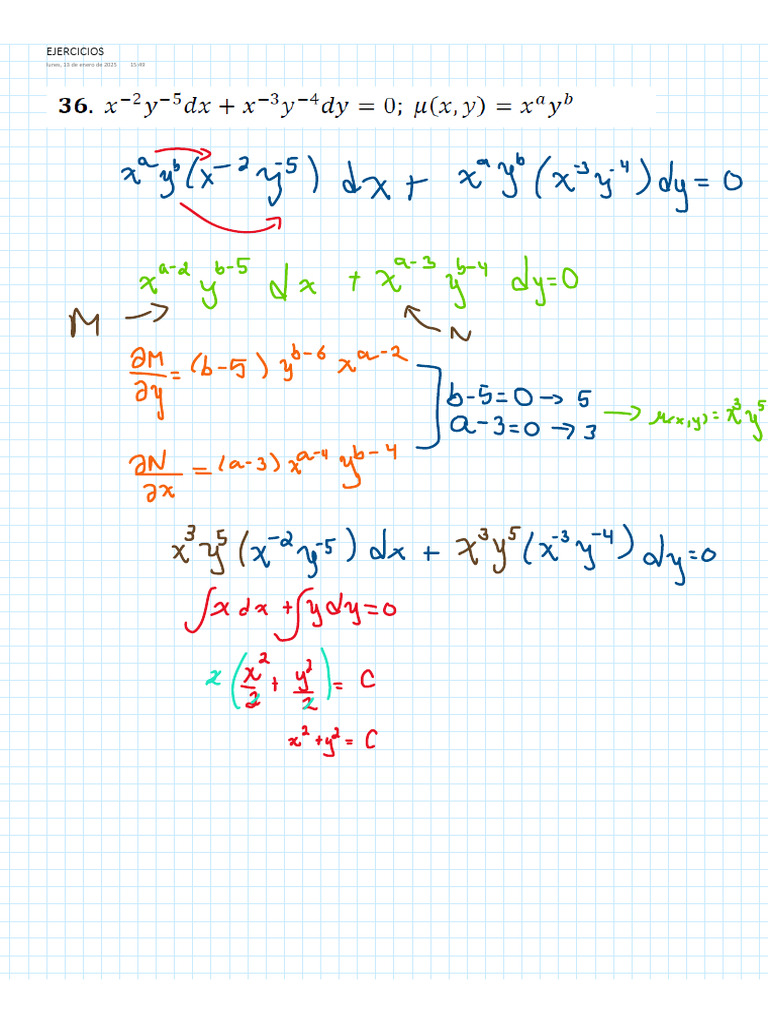 EJERCICIOS
lunes, 13 de enero de 2025 15:49
36. x⁻²y⁻⁵dx + x⁻³y⁻⁴dy = 0; μ(x, y) = xᵃyᵇ
xᵃyᵇ(x⁻²y⁻⁵) dx + xᵃyᵇ(x⁻³y⁻⁴)dy = 0
xᵃ⁻²yᵇ⁻⁵ dx + xᵃ⁻³yᵇ⁻⁴ dy=0
M → ← N
∂M/∂y = (b-5) yᵇ⁻⁶ xᵃ⁻²
b-5=0 → 5
a-3=0 → 3
→ μ(x,y) = x³y⁵
∂N/∂x = (a-3) xᵃ⁻⁴ yᵇ⁻⁴
x³y⁵(x⁻²y⁻⁵) dx + x³y⁵(x⁻³y⁻⁴) dy=0
∫x dx + ∫y dy = 0
2(x²/2 + y²/2) = C
x² + y² = C